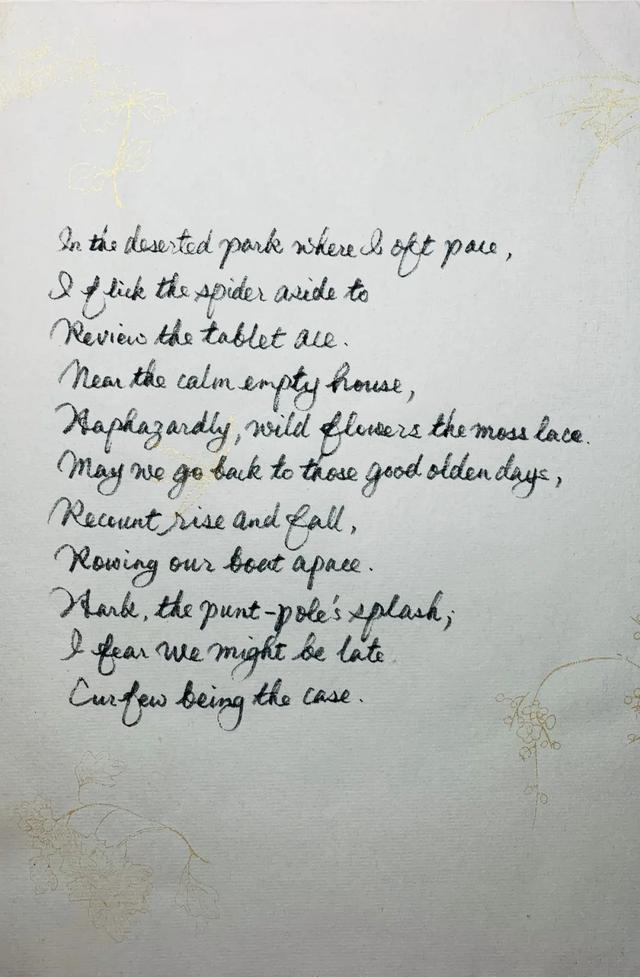 In the deserted park where I oft pace,
I flick the spider aside to
Review the tablet ace.
Near the calm empty house,
Haphazardly, wild flowers the moss lace.
May we go back to those good olden days,
Recount rise and fall,
Rowing our boat apace.
Hark, the punt-pole's splash;
I fear we might be late
Curfew being the case.